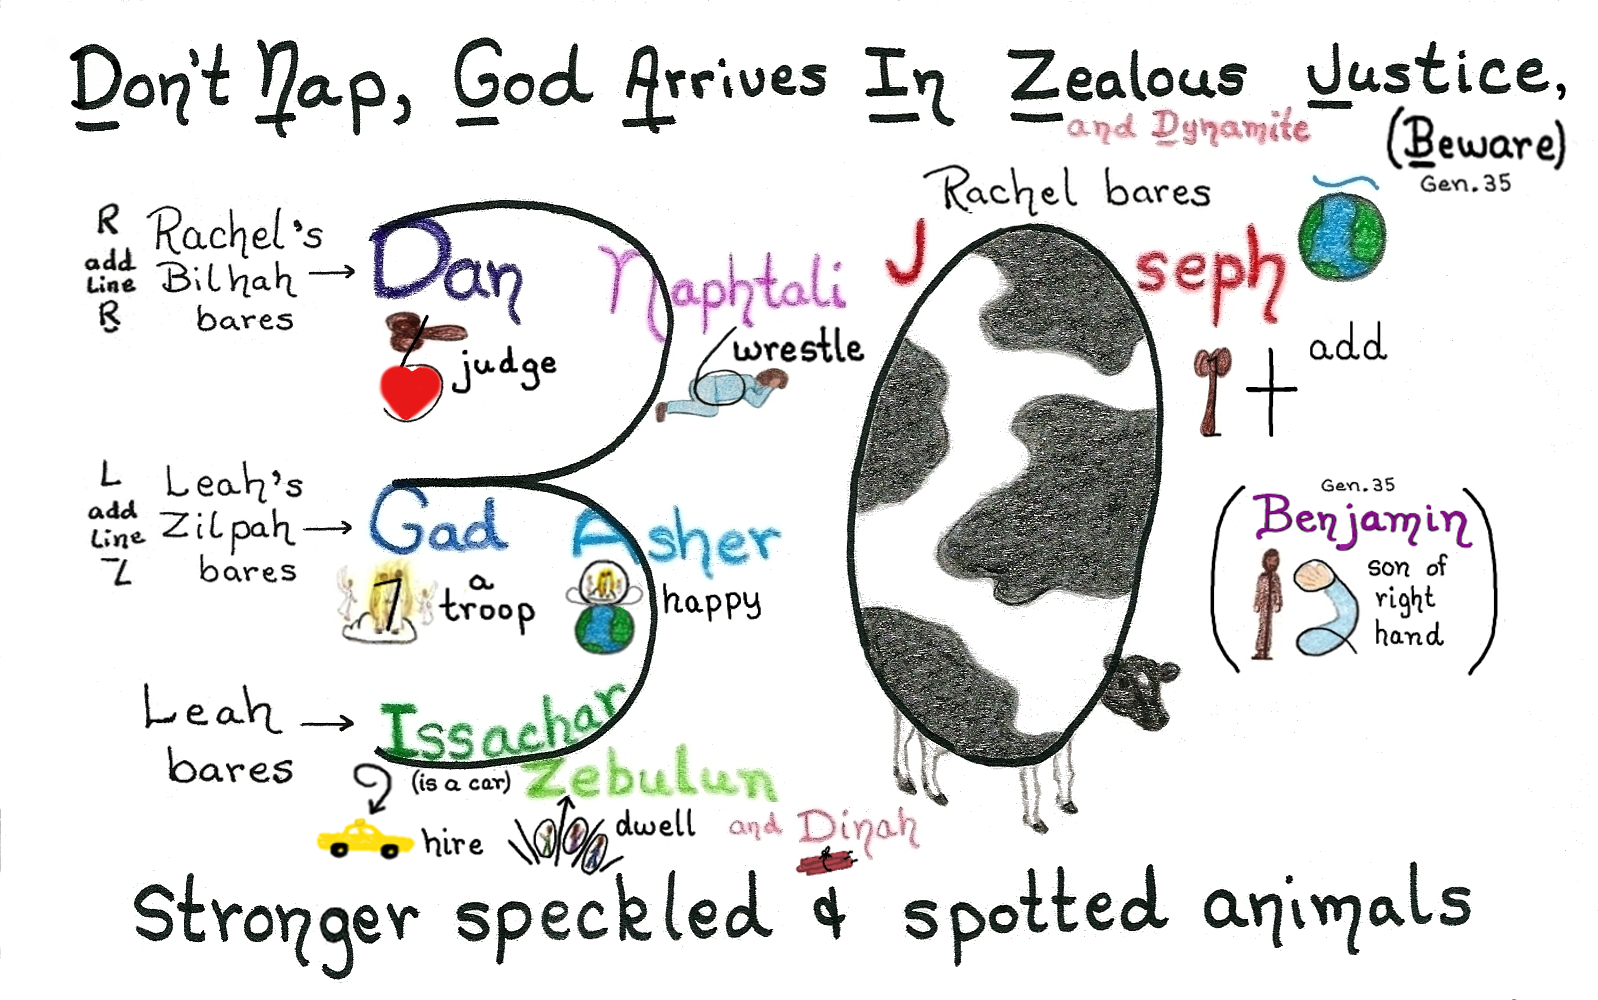 Don't Nap, God Arrives In Zealous Justice,
and Dynamite
(Beware)
Gen. 35
R
add
Line
B
Rachel's
Bilhah
bares
Dan
judge
Naphtali
wrestle
Rachel bares
J seph
add
L
add
Line
Z
Leah's
Zilpah
bares
Gad
a
troop
Asher
happy
(Gen. 35
Benjamin
son of
right
hand)
Leah
bares
Issachar
(is a car)
hire
Zebulun
dwell
and Dinah
Stronger speckled & spotted animals